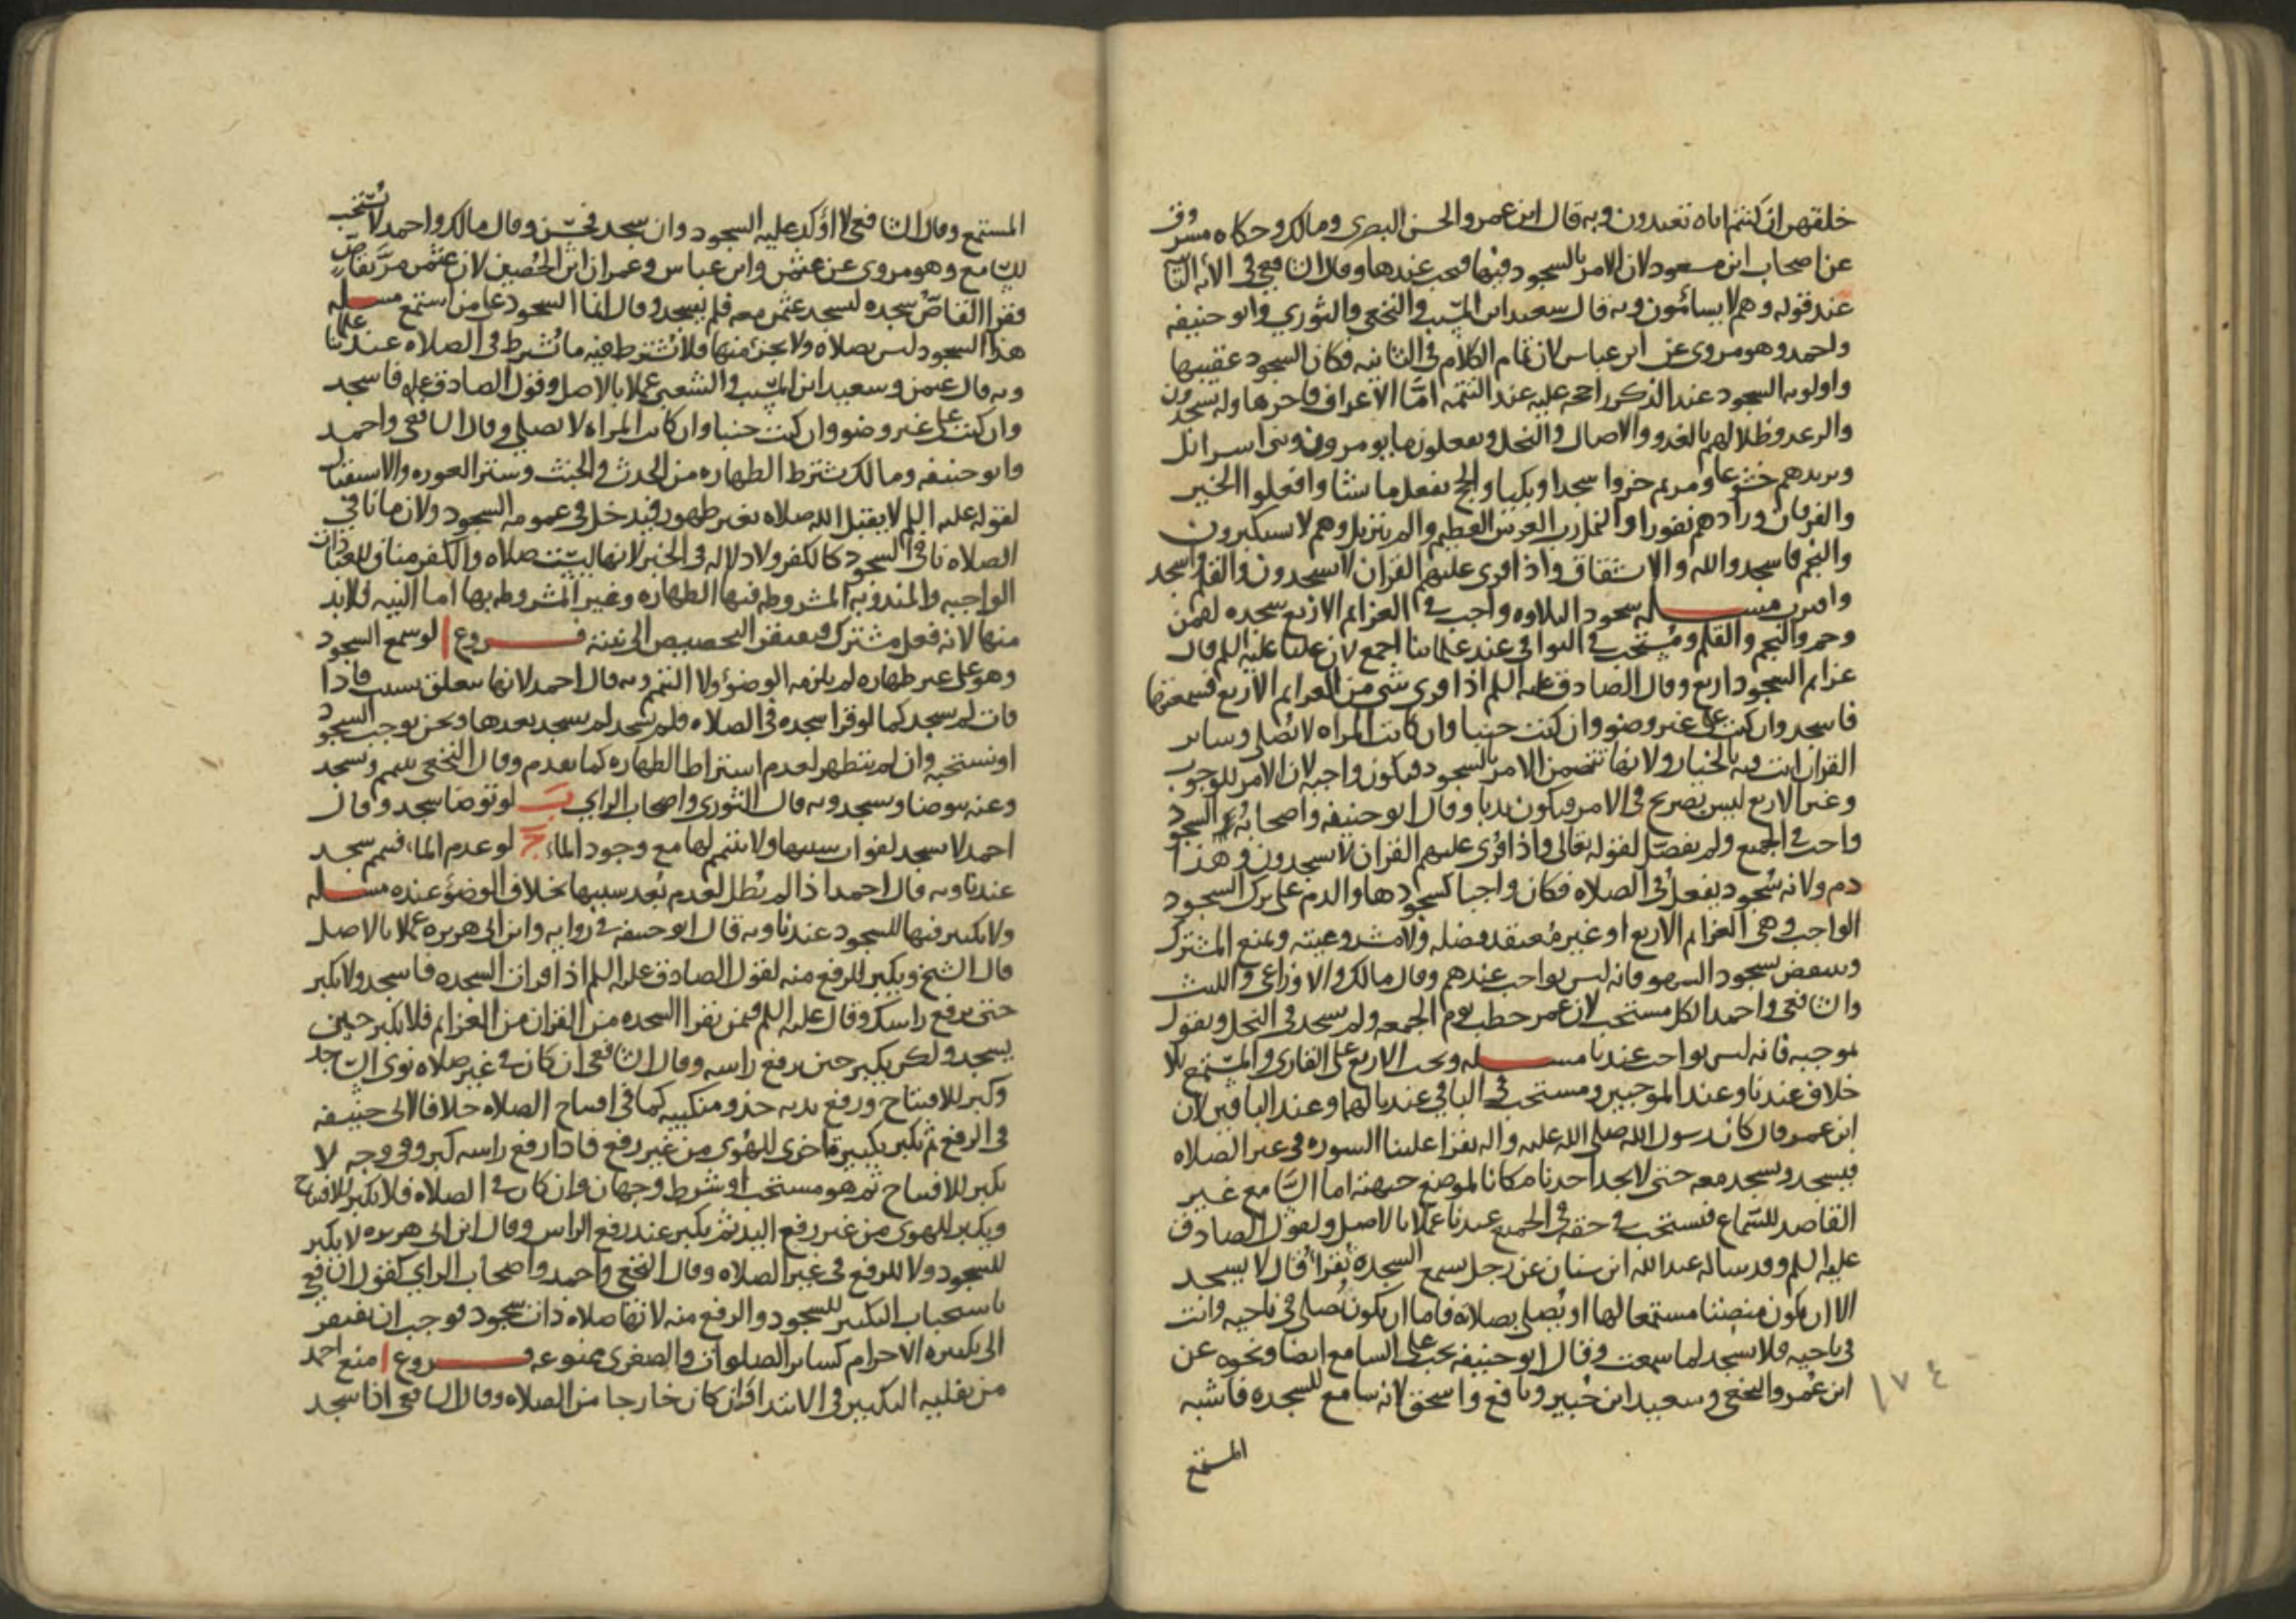 خلقهن ان كنتم اياه تعبدون وبه قال ابن عمر والحسن البصري ومالك وحكاه مسروق
عن اصحاب ابن مسعود لان الامر بالسجود فيها فيجب عندها وقال الشافعي في الثاني
عند قوله وهم لا يسأمون وبه قال سعيد ابن المسيب والنخعي والثوري وابو حنيفه
واحمد وهو مروي عن ابن عباس لان تمام الكلام في الثانيه فكان السجود عقيبها
واولويه السجود عند الذكر راجحه عليه عند التتمه امّا الاعراف فاخرها وله يسجدون
والرعد وظلالهم بالغدو والاصال والنحل ويفعلون ما يومرون وبنى اسرائل
ويزيدهم خشوعا ومريم خروا سجدا وبكيا والحج يفعل ما يشا وافعلوا الخير
والفرقان وزادهم نفورا والنمل رب العرش العظيم والم تنزيل وهم لا يستكبرون
والنجم فاسجدوا لله والانشقاق واذا قرى عليهم القران لا يسجدون والقلم واسجد
واقترب مسله سجود التلاوه واجب في العزايم الاربع سجده لقمن
وحم والنجم والقلم ومستحب في البواقي عند علمائنا اجمع لان عليا عليه السلم قال
عزايم السجود اربع وقال الصادق عليه السلم اذا قرى شي من العزايم الاربع فسمعتها
فاسجد وان كنت على غير وضو وان كنت جنبا وان كانت المراه لا تصلي وساير
القران انت فيه بالخيار ولانها تتضمن الامر بالسجود فيكون واجبه لان الامر للوجوب
وغير الاربع ليس بصريح في الامر فيكون ندبا وقال ابو حنيفه واصحابه السجود
واجب في الجميع ولم يفصّل لقوله تعالى واذا قرى عليهم القران لا يسجدون وهذا
دم ولانه سجود يفعل في الصلاه فكان واجبا كسجودها والدم على ترك السجود
الواجب وهي العزايم الاربع او غير معتقد فضله ولا مشروعيته ويمنع المشترك
وينتقض بسجود السهو فانه ليس بواجب عندهم وقال مالك والاوزاعي والليث
والشافعي واحمد الكل مستحب لان عمر خطب يوم الجمعه ولم يسجد في النحل ونقول
بموجبه فانه ليس بواجب عندنا مسله ويجب الاربع على القاري والمستمع بلا
خلاف عندنا وعند الموجبين ومستحب في الباقي عندنا لهما وعند الباقين لان
ابن عمر قال كان رسول الله صلى الله عليه واله يقرا علينا السوره في غير الصلاه
فيسجد ونسجد معه حتى لا يجد احدنا مكانا لموضع جبهته اما السّامع غير
القاصد للسّماع فيستحب في حقه في الجميع عندنا عملا بالاصل ولقول الصادق
عليه السلم وقد ساله عبدالله ابن سنان عن رجل سمع السجده تقرا قال لا يسجد
الا ان يكون منصتا مستمعا لها او يصلي بصلاته فاما ان يكون يصلي في ناحيه وانت
في ناحيه فلا تسجد لما سمعت وقال ابو حنيفه يجب على السامع ايضا ونحوه عن
ابن عمر والنخعي وسعيد ابن جبير ونافع واسحق لانه سامع للسجده فاشبه
١٧٤
المستمع
المستمع وقال الشافعي لا اؤكد عليه السجود وان سجد فحسن وقال مالك واحمد لا يستحب
للسّامع وهو مروي عن عثمن وابن عباس وعمران ابن الحصين لان عثمن مرّ بقاصّ
فقرا القاصّ سجده ليسجد عثمن معه فلم يسجد وقال انما السجود على من استمع مسله
هذا السجود ليس بصلاه ولا بجزء منها فلا يشترط فيه ما يشترط في الصلاه عند علمائنا
وبه قال عثمن وسعيد ابن المسيب والشعبي عملا بالاصل وقول الصادق عليه فاسجد
وان كنت على غير وضو وان كنت جنبا وان كانت المراه لا تصلي وقال الشافعي واحمد
وابو حنيفه ومالك يشترط الطهاره من الحدث والخبث وستر العوره والاستقبال
لقوله عليه السلم لا يقبل الله صلاه بغير طهور فيدخل في عمومه السجود ولان ما نافى
الصلاه نافى السجود كالكفر ولا دلاله في الخبر لانها ليست صلاه والكفر مناف للعبادات
الواجبه والمندوبه المشروطه فيها الطهاره وغير المشروطه بها اما النيه فلا بد
منها لانه فعل مشترك فيفتقر التخصيص الى نيته فروع ا لو سمع السجود
وهو على غير طهاره لم يلزمه الوضوء ولا التيمم وبه قال احمد لانها يتعلق بسبب فاذا
فات لم يسجد كما لو قرا سجده في الصلاه فلم يسجد لم يسجد بعدها ونحن نوجب السجود
او نستحبه وان لم يتطهر لعدم اشتراط الطهاره كما تقدم وقال النخعي يتيمم ويسجد
وعنه يتوضا ويسجد وبه قال الثوري واصحاب الراي ب لو توضا سجد وقال
احمد لا يسجد لفوات سببها ولا يتيمم لها مع وجود الماء ج لو عدم الماء فتيمم سجد
عندنا وبه قال احمد اذا لم يطل لعدم بعد سببها بخلاف الوضؤ عنده مسله
ولا تكبير فيها للسجود عندنا وبه قال ابو حنيفه في روايه وابن ابي هريره عملا بالاصل
قال الشيخ ويكبر للرفع منه لقول الصادق عليه السلم اذا قرات السجده فاسجد ولا تكبر
حتى ترفع راسك وقال عليه السلم فيمن يقرا السجده من القران من العزايم فلا يكبر حين
يسجد ولكن يكبر حين يرفع راسه وقال الشافعي ان كان في غير صلاه نوى السّاجد
وكبر للافتتاح ورفع يديه حذو منكبيه كما في افتتاح الصلاه خلافا لابي حنيفه
في الرفع ثم يكبر تكبيرة اخرى للهوى من غير رفع فاذا رفع راسه كبر وفي وجه لا
يكبر للافتتاح ثم هو مستحب او شرط وجهان وان كان في الصلاه فلا يكبر للافتتاح
ويكبر للهوى من غير رفع اليد ثم يكبر عند رفع الراس وقال ابن ابي هريره لا يكبر
للسجود ولا للرفع في غير الصلاه وقال النخعي واحمد واصحاب الراي كقول الشافعي
باستحباب التكبير للسجود والرفع منه لانها صلاه ذات سجود فوجب ان يفتقر
الى تكبيره الاحرام كساير الصلوات والصغرى ممنوعه فروع ا منع احمد
من تقليبه التكبير في الابتدا ان كان خارجا من الصلاه وقال الشافعي اذا سجد